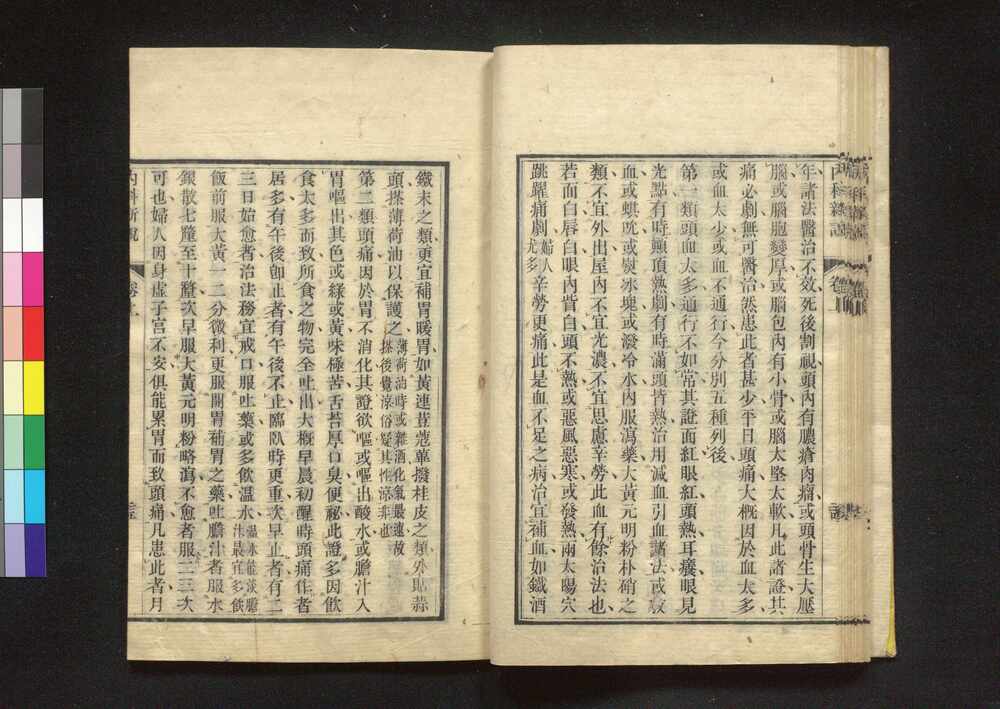 年諸法醫治不效死後割視頭內有膿瘡肉瘤或頭骨生大壓
腦或腦胞變厚或腦包內有小骨或腦太堅太軟凡此諸證其
痛必劇無可醫治然患此者甚少平日頭痛大概因於血太多
或血太少或血不通行今分別五種列後
第一類頭血太多通行不如常其證面紅眼紅頭熱耳癢眼見
光點有時顖頂熱劇有時滿頭皆熱治用減血引血諸法或放
血或蜞吮或熨冰塊或潑冷水內服瀉藥大黃元明粉朴硝之
類不宜外出屋內不宜光濃不宜思慮辛勞此血有餘治法也
若面白唇白眼內眥白頭不熱或惡風惡寒或發熱兩太陽穴
跳躍痛劇婦人尤多辛勞更痛此是血不足之病治宜補血如鐵酒
鐵末之類更宜補胃暖胃如黃連荳蔻蓽撥桂皮之類外貼蒜
頭搽薄荷油以保護之薄荷油時或雜酒化氣最速故搽後覺涼俗疑其性涼非也
第二類頭痛因於胃不消化其證欲嘔或嘔出酸水或膽汁入
胃嘔出其色或綠或黃味極苦舌苔厚口臭便秘此證多因飲
食太多而致所食之物完全吐出大概早晨初醒時頭痛作者
居多有午後卽止者有午後不止臨臥時更重次早止者有二
三日始愈者治法務宜戒口服吐藥或多飲溫水溫水能淡膽汁最宜多飲
飯前服大黃一二分微利更服開胃補胃之藥吐膽汁者服水
銀散七釐至十釐次早服大黃元明粉略瀉不愈者服二三次
可也婦人因身虛子宮不安俱能累胃而致頭痛凡患此者月
內科新說